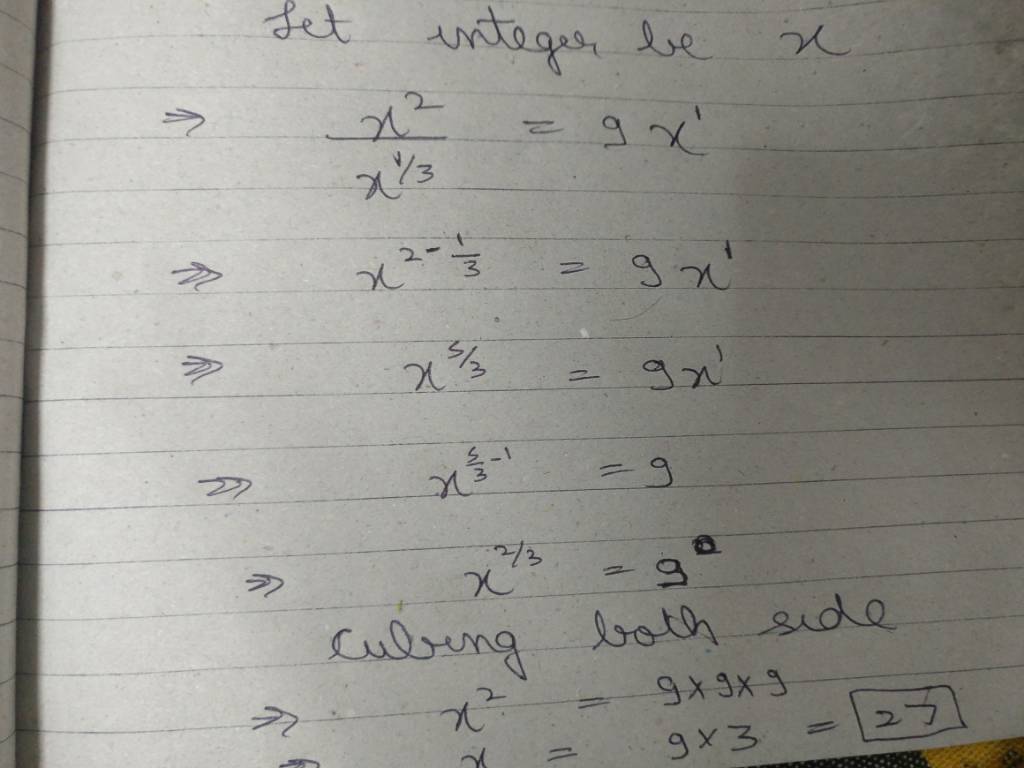 Let integer be x
⇒ x² / x^1/3 = 9x¹
⇒ x^2-1/3 = 9x¹
⇒ x^5/3 = 9x¹
⇒ x^5/3-1 = 9
⇒ x^2/3 = 9
cubing both side
⇒ x² = 9×9×9
⇒ x = 9×3 = 27